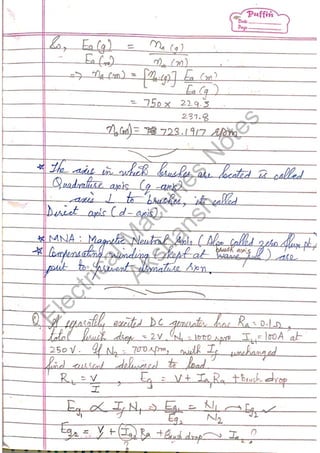 Puffin
Date
Page
So, Ea(g) = n_a(g)
Ea(m) n_a(m)
=> n_a(m) = [n_a(g)] Ea(m)
Ea(g)
= 750 x 229.3
237.8
n_a(m) = 723.1917 rpm
* The axis in which brushes are located is called
Quadrature axis (q-axis)
axis ⊥ to brushes, is called
Direct axis (d-axis)
* MNA: Magnetic Neutral Axis (Also called zero flux pt.)
* Compensating winding (kept at brush axis) are
put to prevent armature rxn.
Electrical Machines Notes
Akshansh
Q. A separately excited DC generator has Ra = 0.1Ω,
total brush drop = 2V, N₁ = 1000 rpm, I_L1 = 100A at
250V. If N₂ = 700 rpm, with If unchanged
find current delivered to load.
R_L = V/I, Eg = V + Ia Ra + Brush drop
Eg ∝ If N, => Eg₁/Eg₂ = N₁/N₂ → Eg₂ ✓
Eg₂ = V + (Ia₂) Ra + Brush drop → Ia₂ ?
?